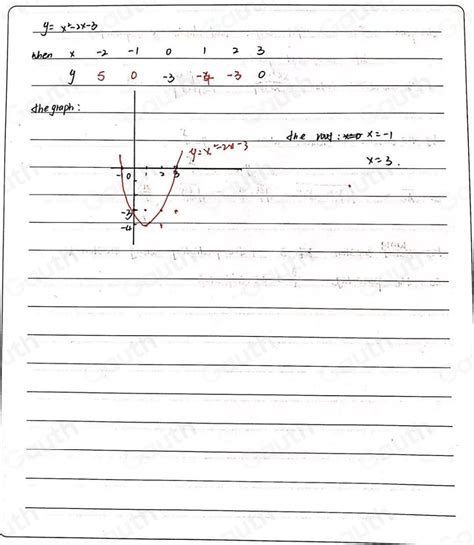 y = x²-2x-3
when x -2 -1 0 1 2 3
y 5 0 -3 -4 -3 0
the graph:
the root: x=0 x=-1
y=x²-2x-3
x=3.
-1 0 1 2 3
-3
-4
Gauth